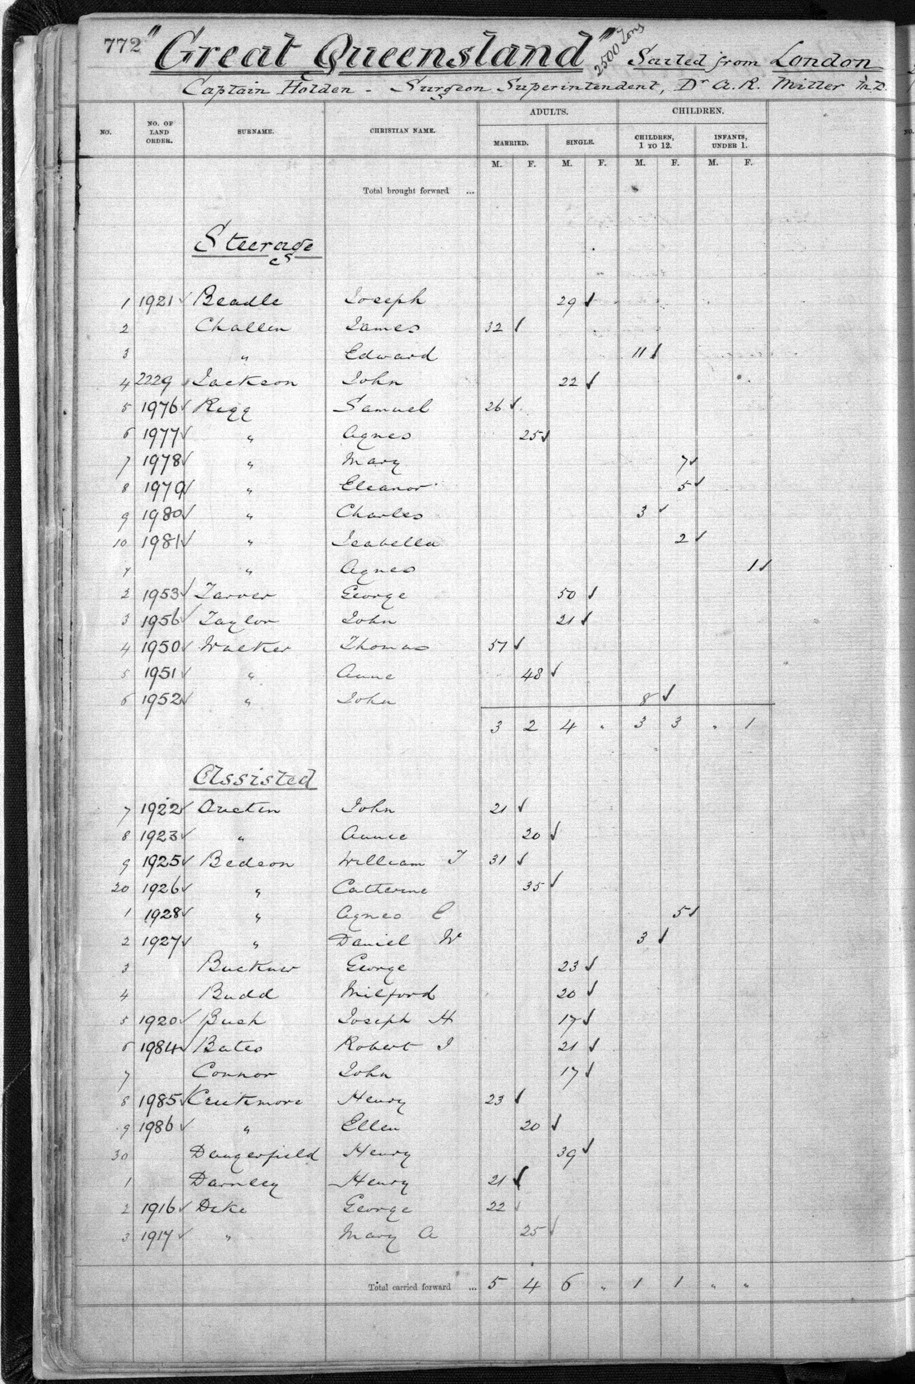 772 "Great Queensland" 2500 Tons Sailed from London
Captain Holden - Surgeon Superintendent, Dr A. R. Miller M.D.
NO. NO. OF LAND ORDER. SURNAME. CHRISTIAN NAME. ADULTS. CHILDREN.
MARRIED. SINGLE. CHILDREN, 1 TO 12. INFANTS, UNDER 1.
M. F. M. F. M. F. M. F.
Total brought forward ...
Steerage
1 1921 ✓ Beadle Joseph 29 ✓
2 Challen James 32 ✓
3 " Edward 11 ✓
4 2229 Jackson John 22 ✓
5 1976 ✓ Rigg Samuel 26 ✓
6 1977 ✓ " Agnes 25 ✓
7 1978 ✓ " Mary 7 ✓
8 1979 ✓ " Eleanor 5 ✓
9 1980 ✓ " Charles 3 ✓
10 1981 ✓ " Isabella 2 ✓
" Agnes 1 ✓
2 1953 ✓ Tarver George 50 ✓
3 1956 ✓ Taylor John 21 ✓
4 1950 ✓ Walker Thomas 57 ✓
5 1951 ✓ " Anne 48 ✓
6 1952 ✓ " John 8 ✓
3 2 4 " 3 3 " 1
Assisted
7 1922 ✓ Austin John 21 ✓
8 1923 ✓ " Annie 20 ✓
9 1925 ✓ Bedson William T 31 ✓
20 1926 ✓ " Catherine 35 ✓
1 1928 ✓ " Agnes E 5 ✓
2 1927 ✓ " Daniel W 3 ✓
3 George 23 ✓
4 Budd Milford 20 ✓
5 1920 ✓ Bush Joseph H 17 ✓
6 1984 ✓ Bates Robert J 21 ✓
7 Connor John 17 ✓
8 1985 ✓ Henry 23 ✓
9 1986 ✓ " Ellen 20 ✓
30 Dangerfield Henry 39 ✓
1 Darnley Henry 21 ✓
2 1916 ✓ Deke George 22 ✓
3 1917 ✓ " Mary A 25 ✓
Total carried forward ... 5 4 6 " 1 1 " "